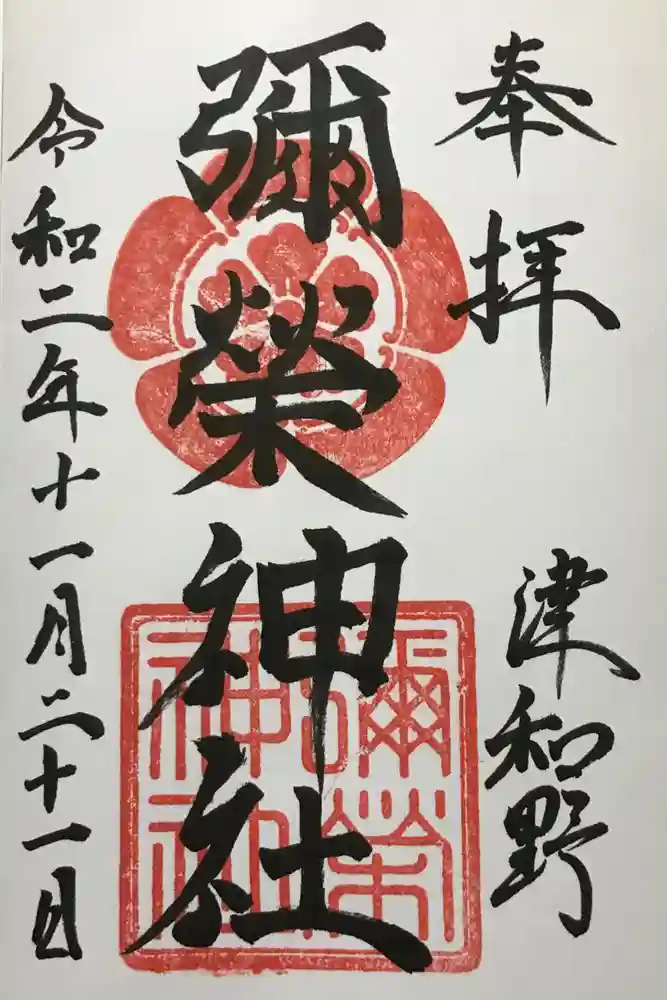 奉拝
津和野
彌榮神社
彌榮
神社
令和二年十一月二十一日